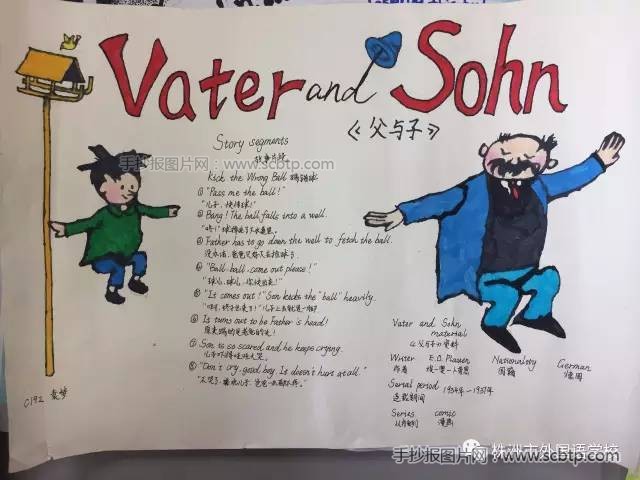 Vater and Sohn
《父与子》
Story segments
故事片段
手抄报图片网：www.scbtp.com
Kick the Wrong Ball 踢错球
① "Pass me the ball!"
"儿子，快传球！"
② Bang! The ball falls into a well.
③ Father has to go down the well to fetch the ball.
没办法，爸爸只好下去捡球了。
④ "Ball, ball, come out please!"
"球儿，球儿，你快出来！"
⑤ "It comes out!" Son kicks the "ball" heavily.
⑥ It turns out to be Father's head!
原来踢的是爸爸的头！
⑦ Son is so scared and he keeps crying.
儿子吓得哇哇大哭。
⑧ "Don't cry, good boy. It doesn't hurt at all."
Vater and Sohn
material
《父与子》资料
Writer E.O. Plauen Nationality German
作者 埃·奥·卜劳恩 国籍 德国
Serial period 1934年-1937年
连载时间
Series comic
漫画
C192 袁梦
株洲市外国语学校
手抄报图片网：www.scbtp.com